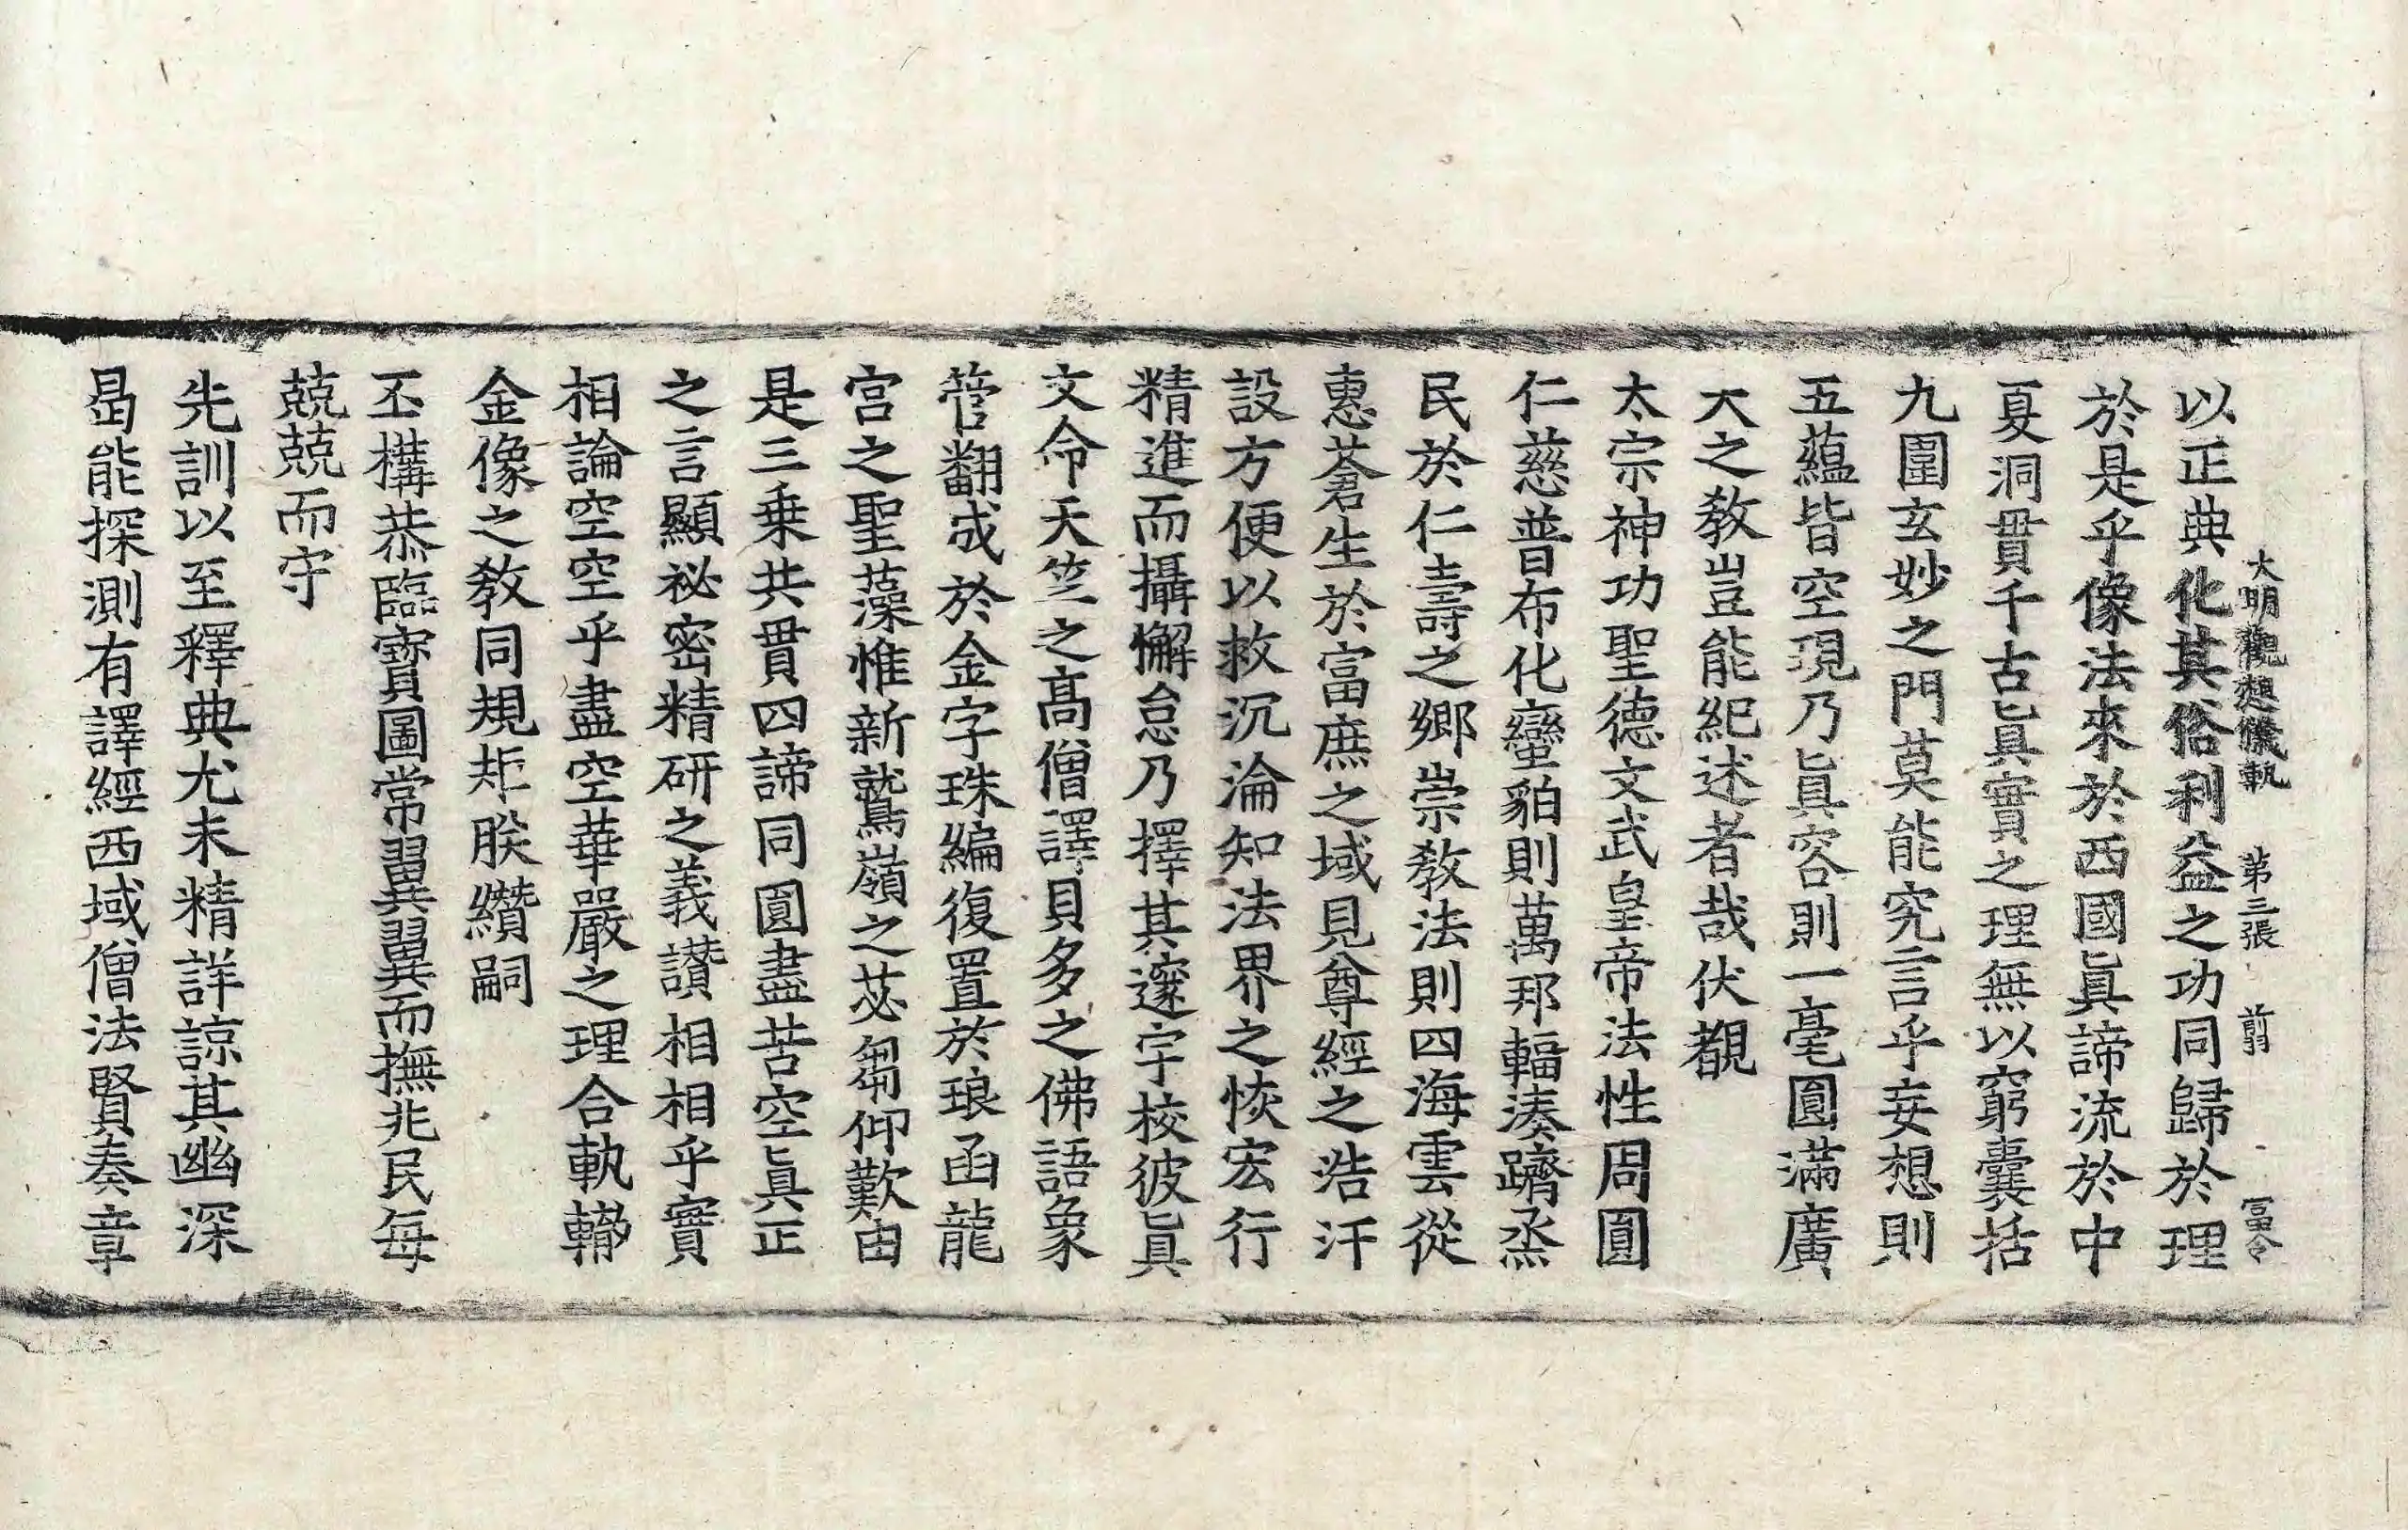 大明觀想儀軌 第三張 前 富令
以正典化其俗利益之功同歸於理
於是乎像法來於西國眞諦流於中
夏洞貫千古眞實之理無以窮囊括
九圍玄妙之門莫能究言乎妄想則
五蘊皆空現乃眞容則一毫圓滿廣
大之敎豈能紀述者哉伏覩
太宗神功聖德文武皇帝法性周圓
仁慈普布化蠻貊則萬邦輻湊躋烝
民於仁壽之鄉崇敎法則四海雲從
惠蒼生於富庶之域見尊經之浩汗
設方便以救沉淪知法界之恢宏行
精進而攝懈怠乃擇其邃宇校彼眞
文命天竺之高僧譯貝多之佛語象
管翻成於金字珠編復置於琅函龍
宮之聖藻惟新鷲嶺之苾蒭仰歎由
是三乗共貫四諦同圓盡苦空眞正
之言顯祕密精研之義讃相相乎實
相論空空乎盡空華嚴之理合執轡
金像之敎同規矩朕纘嗣
丕構恭臨寶圖常翼翼而撫兆民每
兢兢而守
先訓以至釋典尤未精詳諒其幽深
曷能探測有譯經西域僧法賢奏章